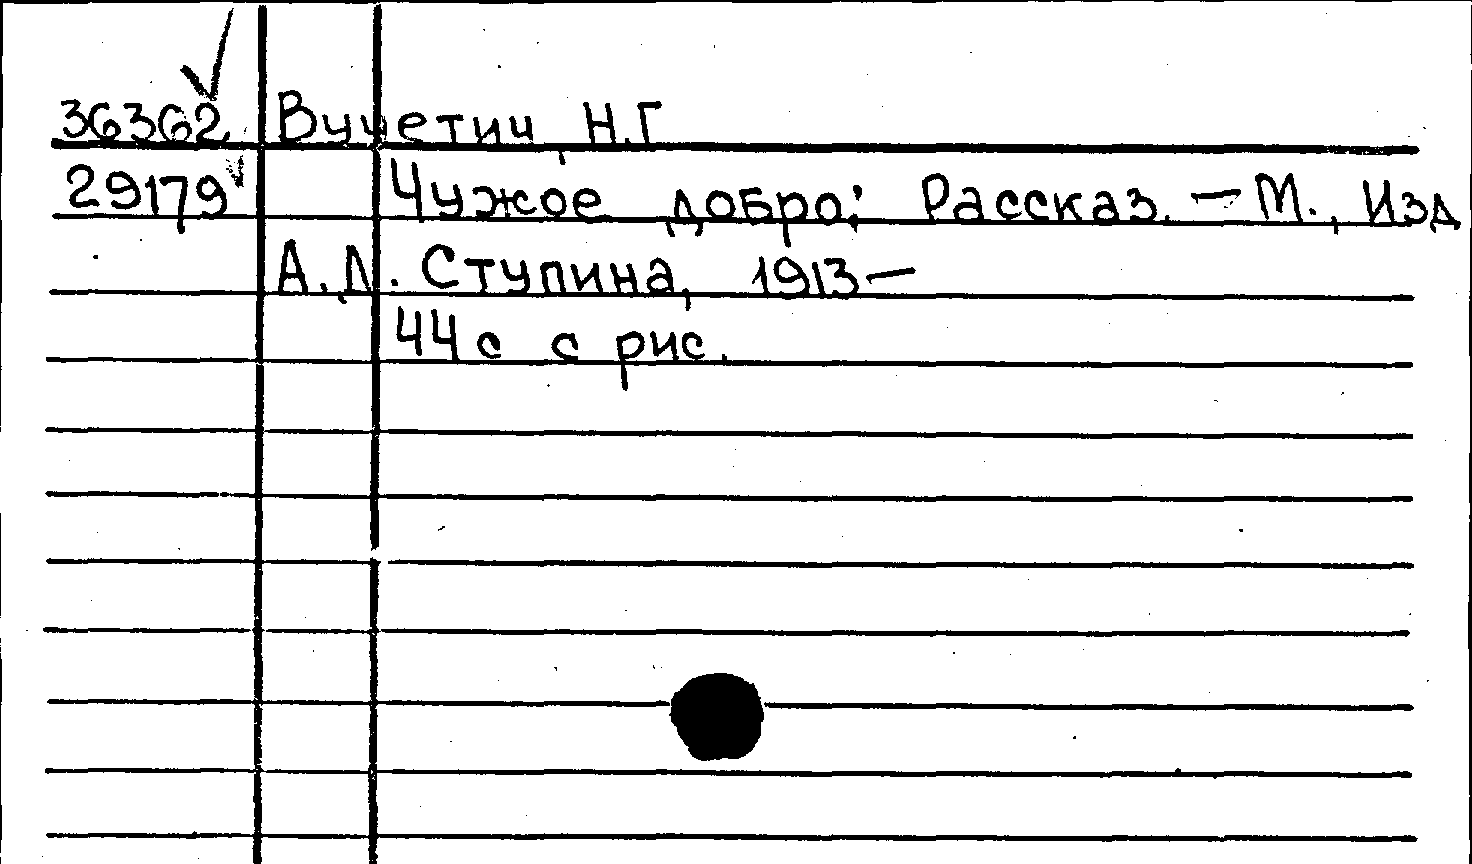 36362 Вучетич, Н.Г
29179 Чужое добро: Рассказ. — М., Изд
А.Д. Ступина, 1913—
44 с с рис.